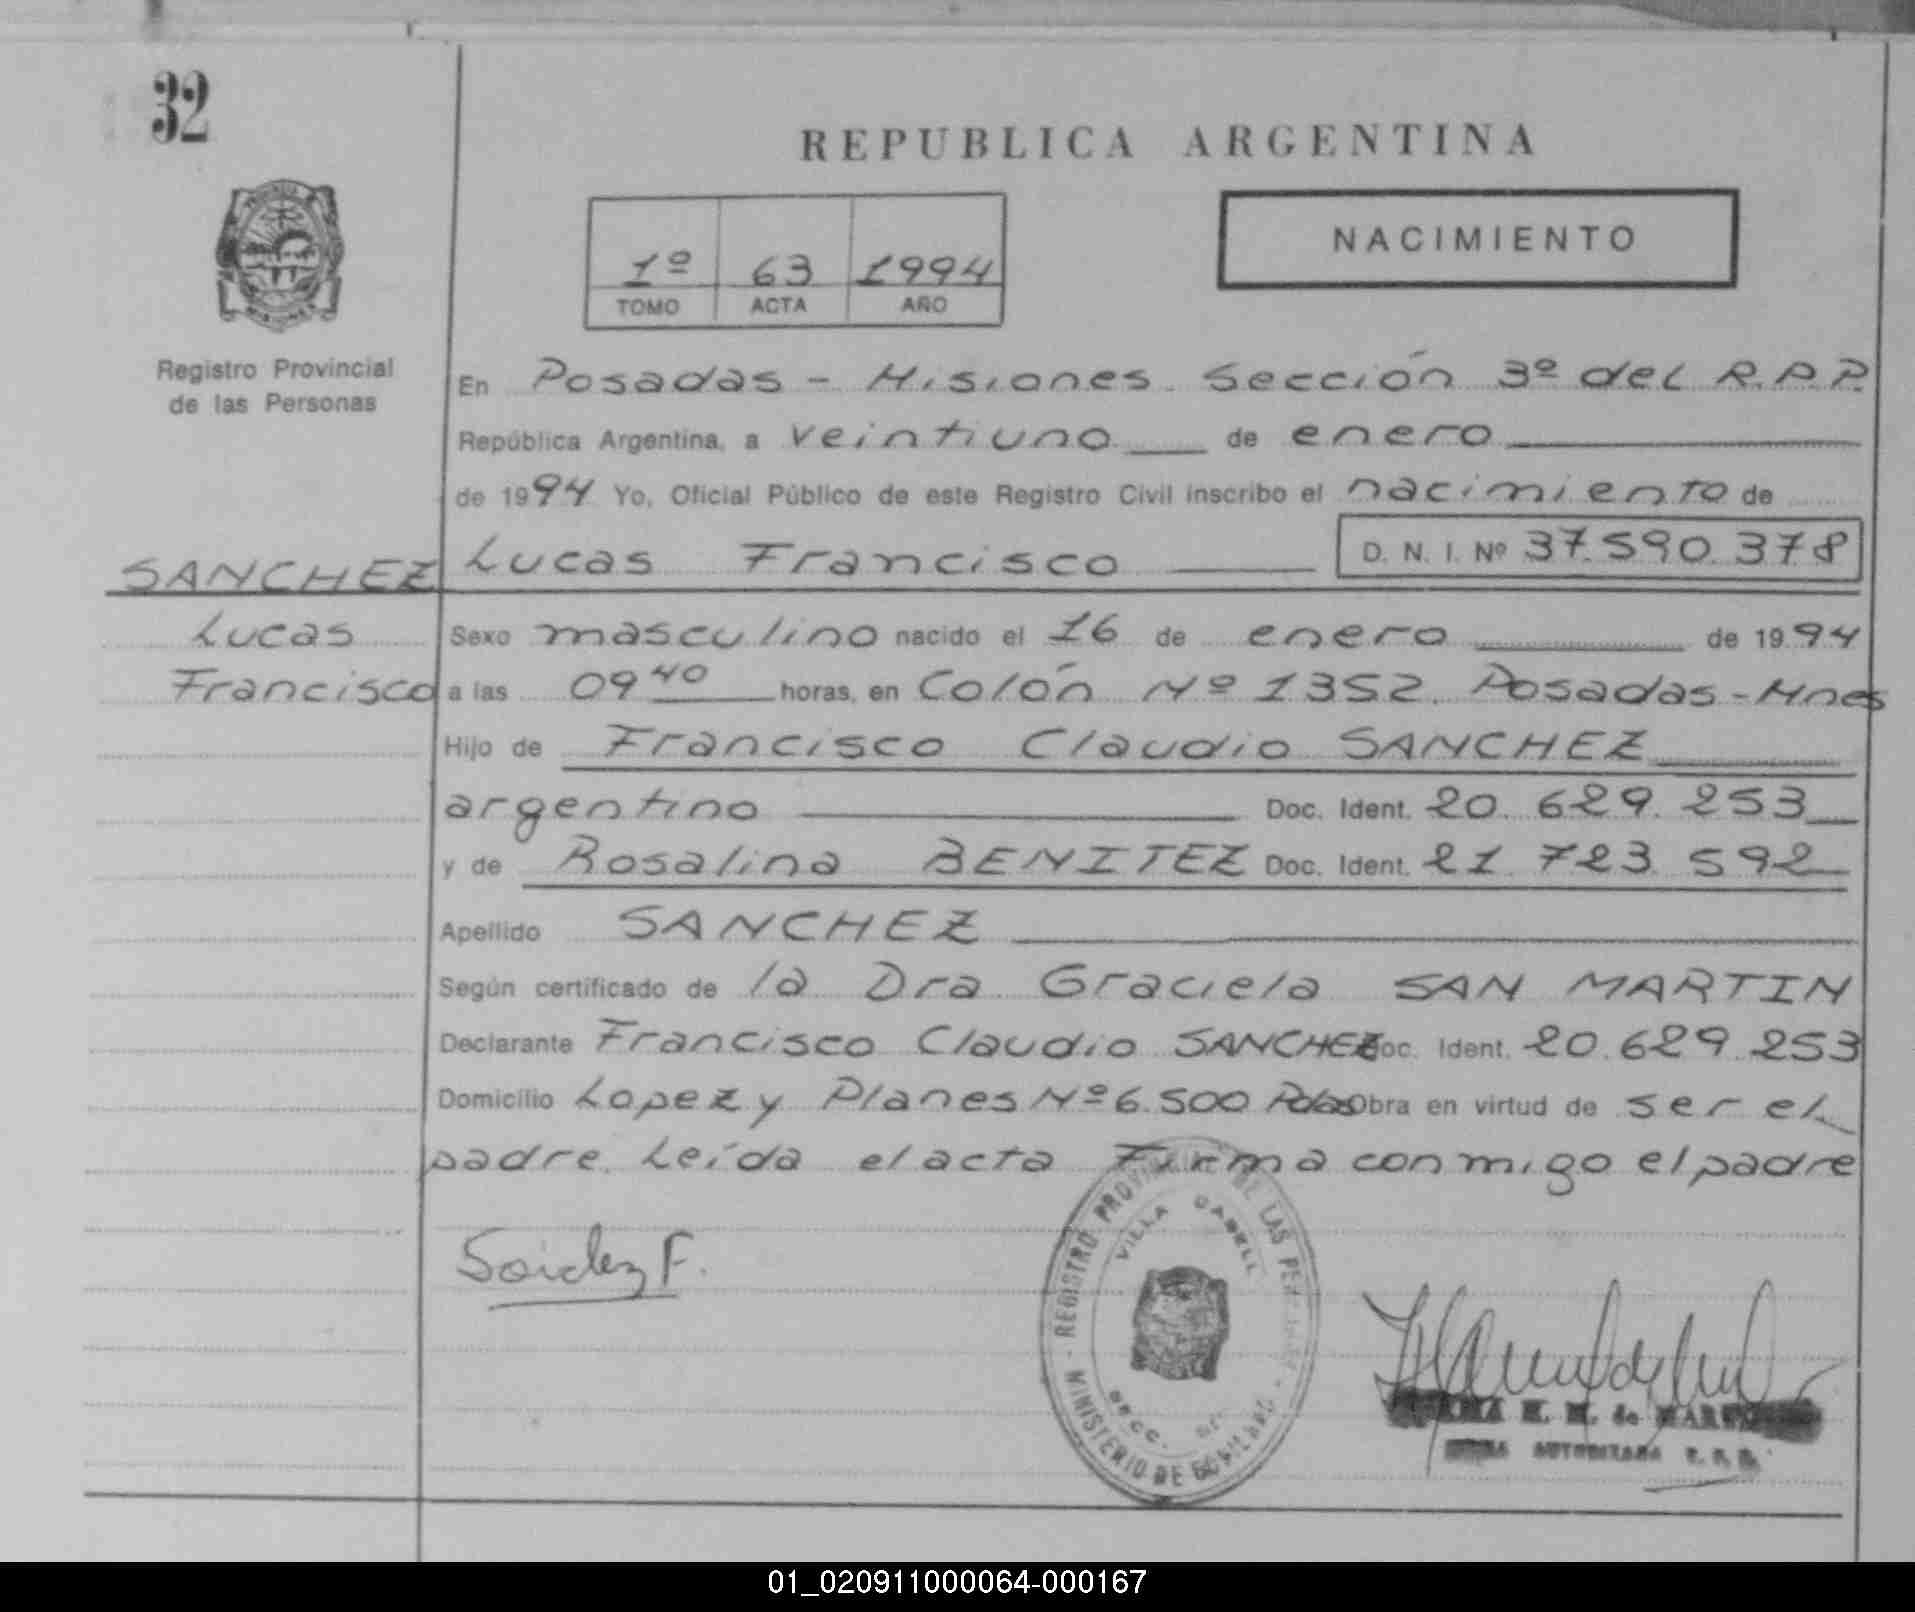 32
REPUBLICA ARGENTINA
1º 63 1994
TOMO ACTA AÑO
NACIMIENTO
Registro Provincial
de las Personas
En Posadas - Misiones. Sección 3º del R.P.P.
República Argentina, a veintiuno de enero
de 1994 Yo, Oficial Público de este Registro Civil inscribo el nacimiento de
SANCHEZ Lucas Francisco D. N. I. Nº 37.590.378
Lucas Sexo masculino nacido el 16 de enero de 1994
Francisco a las 09 40 horas, en Colón Nº 1352. Posadas - Mnes
Hijo de Francisco Claudio SANCHEZ
argentino Doc. Ident. 20.629.253
y de Rosalina BENITEZ Doc. Ident. 21.723.592
Apellido SANCHEZ
Según certificado de la Dra Graciela SAN MARTIN
Declarante Francisco Claudio SANCHEZ Doc. Ident. 20.629.253
Domicilio Lopez y Planes Nº 6.500 Pdas Obra en virtud de ser el
padre. Leída el acta Firma conmigo el padre
F.
REGISTRO PROVINCIAL DE LAS PERSONAS
VILLA CABELL
SECC.
MINISTERIO DE GOBIERNO
M. de
AUTORIZADA
01_020911000064-000167